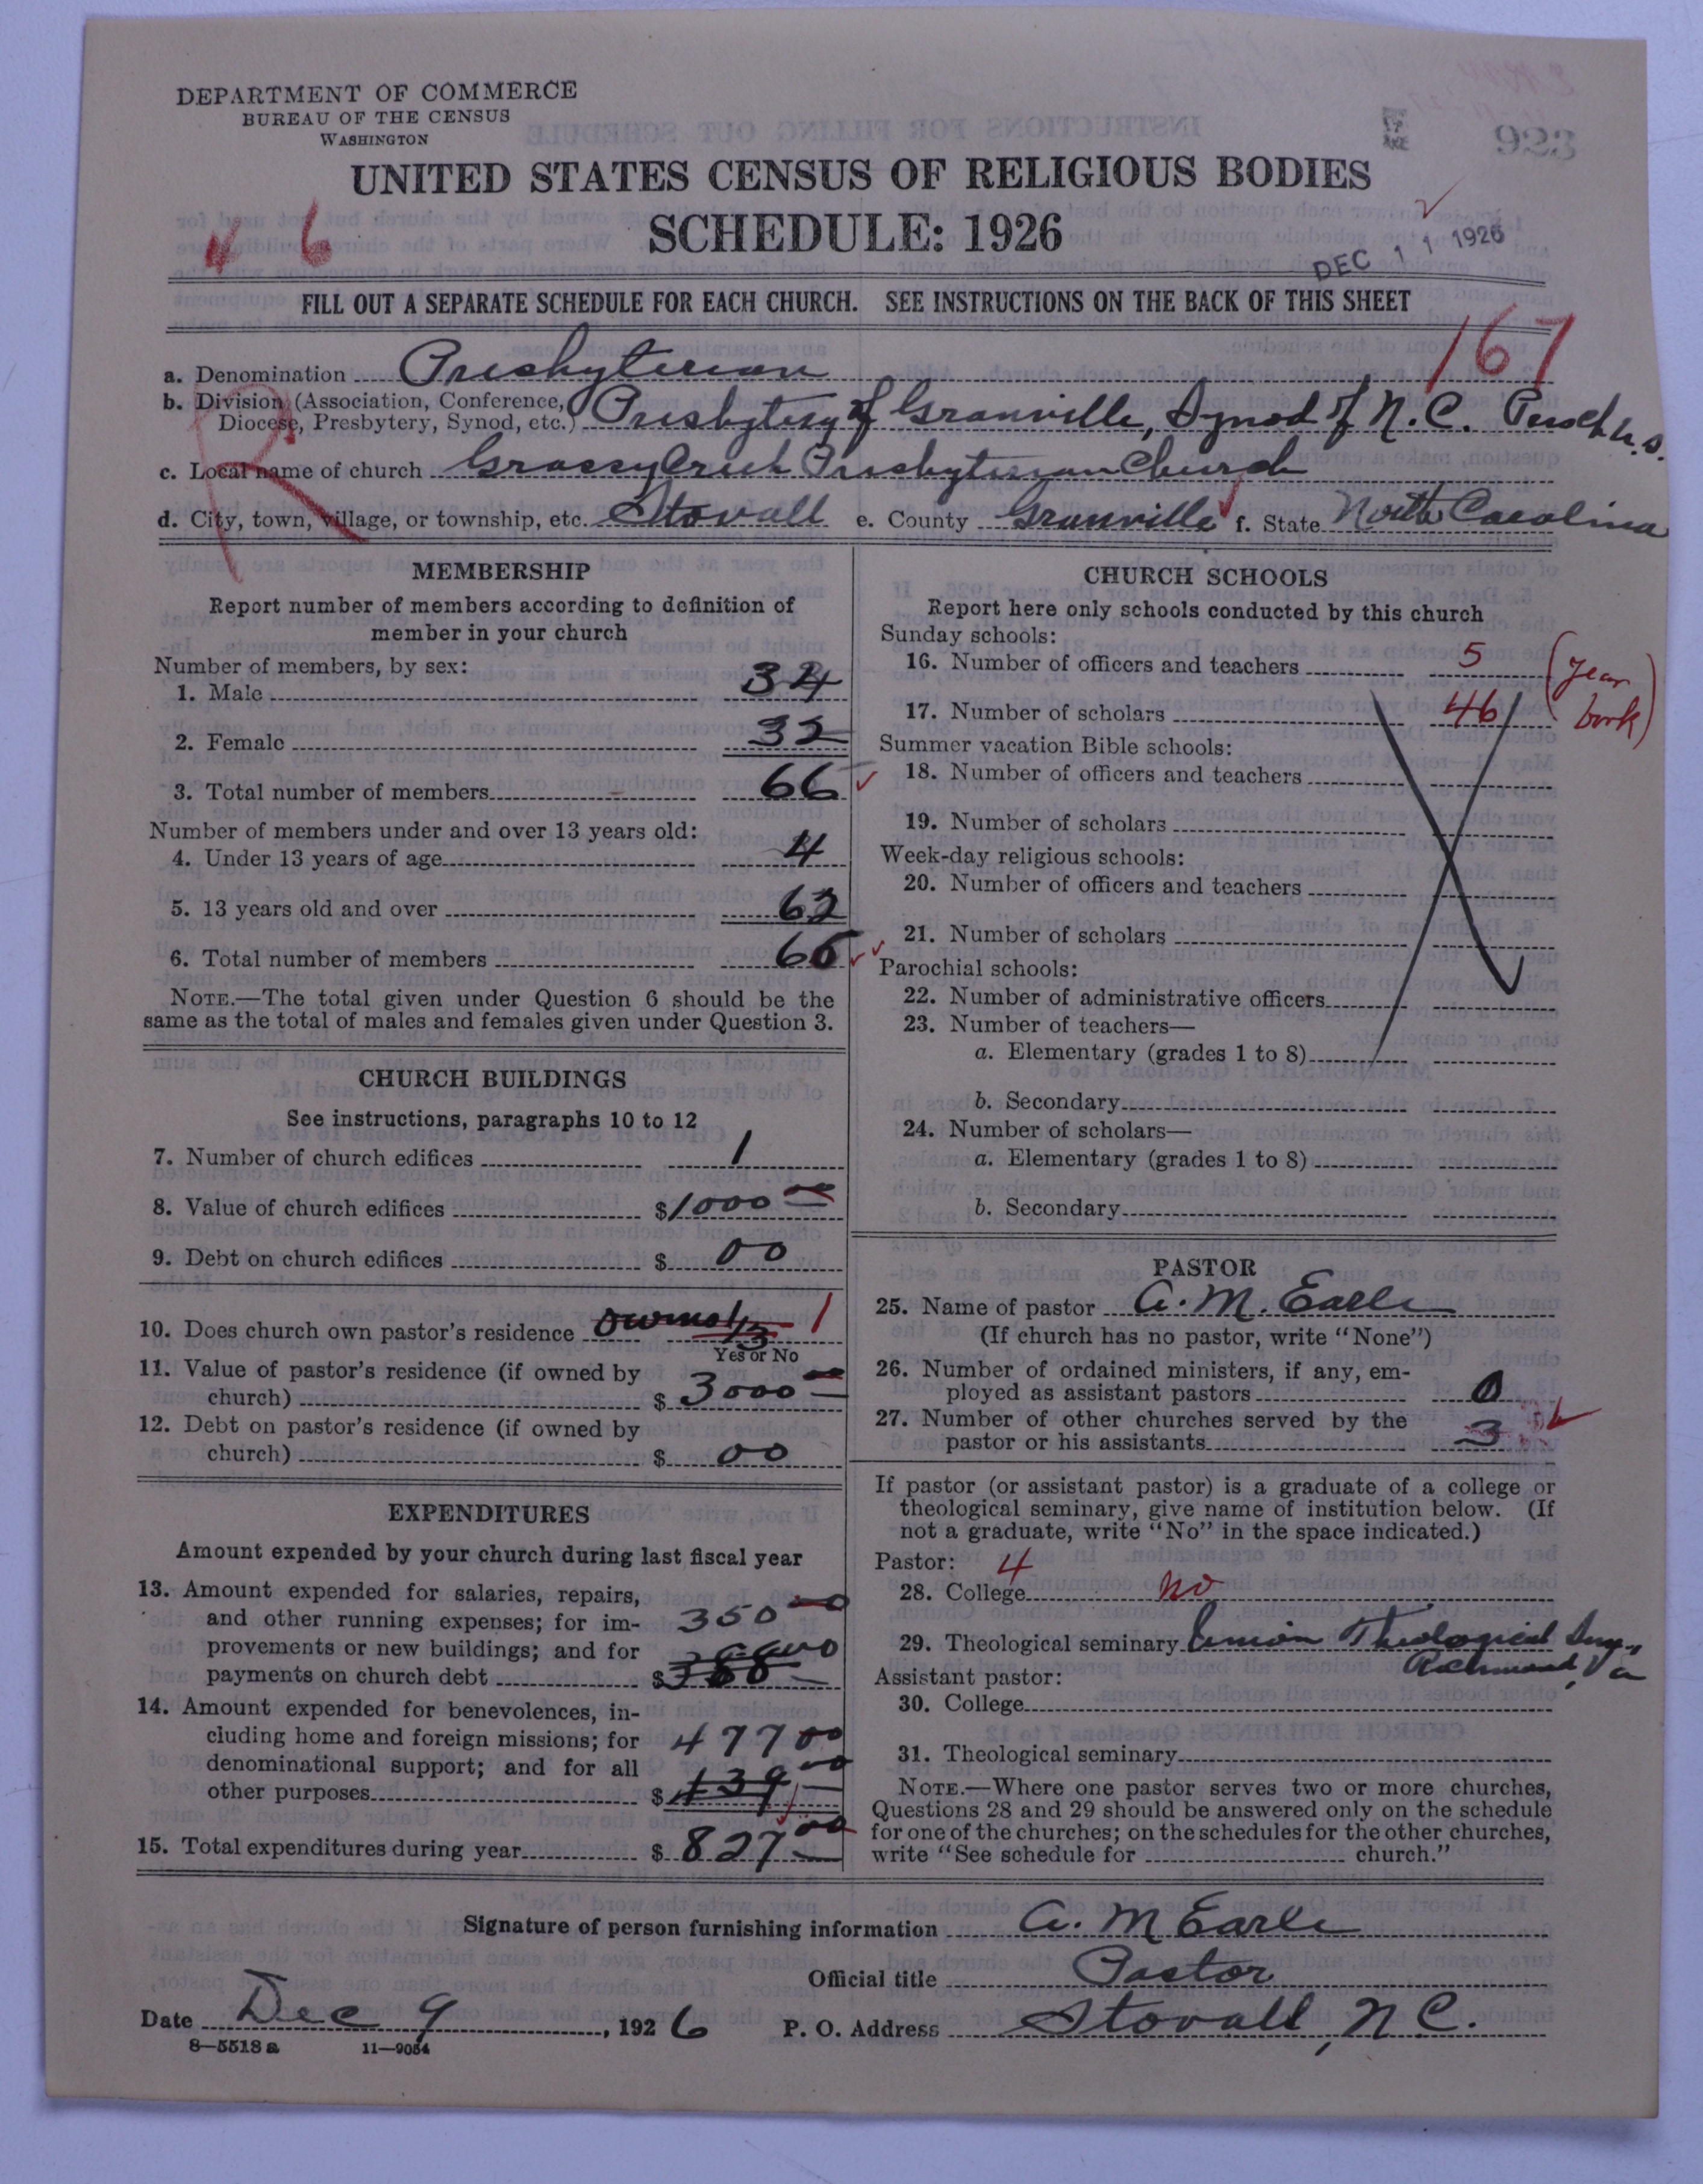 DEPARTMENT OF COMMERCE
BUREAU OF THE CENSUS
WASHINGTON
923
UNITED STATES CENSUS OF RELIGIOUS BODIES
SCHEDULE: 1926
6
DEC 11 1926
FILL OUT A SEPARATE SCHEDULE FOR EACH CHURCH. SEE INSTRUCTIONS ON THE BACK OF THIS SHEET
167
R
a. Denomination Presbyterian
b. Division (Association, Conference, Diocese, Presbytery, Synod, etc.) Presbytery of Granville, Synod of N.C. Presch U.S.
c. Local name of church Grassy Creek Presbyterian Church
d. City, town, village, or township, etc. Stovall e. County Granville f. State North Carolina
MEMBERSHIP
Report number of members according to definition of
member in your church
Number of members, by sex:
1. Male 34
2. Female 32
3. Total number of members 66
Number of members under and over 13 years old:
4. Under 13 years of age 4
5. 13 years old and over 62
6. Total number of members 66
NOTE.—The total given under Question 6 should be the
same as the total of males and females given under Question 3.
CHURCH BUILDINGS
See instructions, paragraphs 10 to 12
7. Number of church edifices 1
8. Value of church edifices $1000 00
9. Debt on church edifices $ 00
10. Does church own pastor's residence owns 1/3 1
Yes or No
11. Value of pastor's residence (if owned by
church) $ 3000 00
12. Debt on pastor's residence (if owned by
church) $ 00
EXPENDITURES
Amount expended by your church during last fiscal year
13. Amount expended for salaries, repairs,
and other running expenses; for im- 350 00
provements or new buildings; and for
payments on church debt $
14. Amount expended for benevolences, in-
cluding home and foreign missions; for 477 00
denominational support; and for all
other purposes $ 139 00
15. Total expenditures during year $ 827 00
CHURCH SCHOOLS
Report here only schools conducted by this church
Sunday schools:
16. Number of officers and teachers 5 (year
17. Number of scholars 46 book)
Summer vacation Bible schools:
18. Number of officers and teachers
19. Number of scholars
Week-day religious schools:
20. Number of officers and teachers
21. Number of scholars
Parochial schools:
22. Number of administrative officers
23. Number of teachers—
a. Elementary (grades 1 to 8)
b. Secondary
24. Number of scholars—
a. Elementary (grades 1 to 8)
b. Secondary
PASTOR
25. Name of pastor A. M. Earle
(If church has no pastor, write "None")
26. Number of ordained ministers, if any, em-
ployed as assistant pastors 0
27. Number of other churches served by the
pastor or his assistants 3
If pastor (or assistant pastor) is a graduate of a college or
theological seminary, give name of institution below. (If
not a graduate, write "No" in the space indicated.)
Pastor: 4
28. College no
29. Theological seminary Union Theological Sem.,
Richmond, Va
Assistant pastor:
30. College
31. Theological seminary
NOTE.—Where one pastor serves two or more churches,
Questions 28 and 29 should be answered only on the schedule
for one of the churches; on the schedules for the other churches,
write "See schedule for church."
Signature of person furnishing information A. M Earle
Official title Pastor
Date Dec 9, 1926 P. O. Address Stovall, N.C.
8—5518 a 11—9054